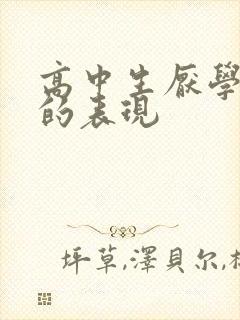 高中生厭學
的表現
坪草,澤貝尔,杉